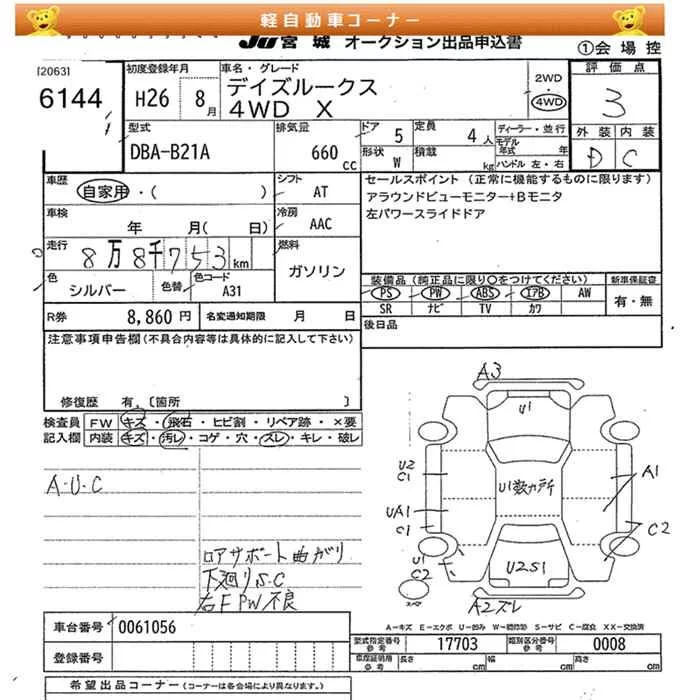 軽自動車コーナー
JU宮城 オークション出品申込書
①会場控
[2063]
6144
初度登録年月
H26 8月
車名・グレード
デイズルークス
4WD X
2WD
・
4WD
評価点
3
外装 内装
D C
型式
DBA-B21A
排気量
660 cc
ドア 5
定員 4人
形状 W
積載 kg
ディーラー・並行
モデル年式 年
ハンドル 左・右
車歴
自家用・( )
シフト
AT
セールスポイント (正常に機能するものに限ります)
アラウンドビューモニター+Bモニタ
左パワースライドドア
車検
年 月( 日)
冷房
AAC
走行
8万8千753km
燃料
ガソリン
色
シルバー
色替
色コード
A31
装備品(純正品に限り○をつけてください)
PS PW ABS エアB AW
SR ナビ TV カワ
新車保証書
有・無
R券 8,860円
名変通知期限 月 日
後日品
注意事項申告欄(不具合内容等は具体的に記入して下さい)
修復歴 有. [箇所 ]
検査員
記入欄
FW キズ・飛石・ヒビ割・リペア跡・×要
内装 キズ・汚レ・コゲ・穴・スレ・キレ・破レ
A・U・C
ロアサポート曲ガリ
下廻りS.C
右FPW不良
A3
U1
U2
C1
U1数カ所
A1
UA1
C1
C2
U1
C2
U2S1
スペア
A2ズレ
A-キズ E-エクボ U-凹み W-補修跡 S-サビ C-腐食 XX-交換済
車台番号 0061056
登録番号
型式指定番号
参考
17703
類別区分番号
参考
0008
車庫証明用
参考
長さ cm 幅 cm 高さ cm
希望出品コーナー(コーナーは各会場により異なります。)